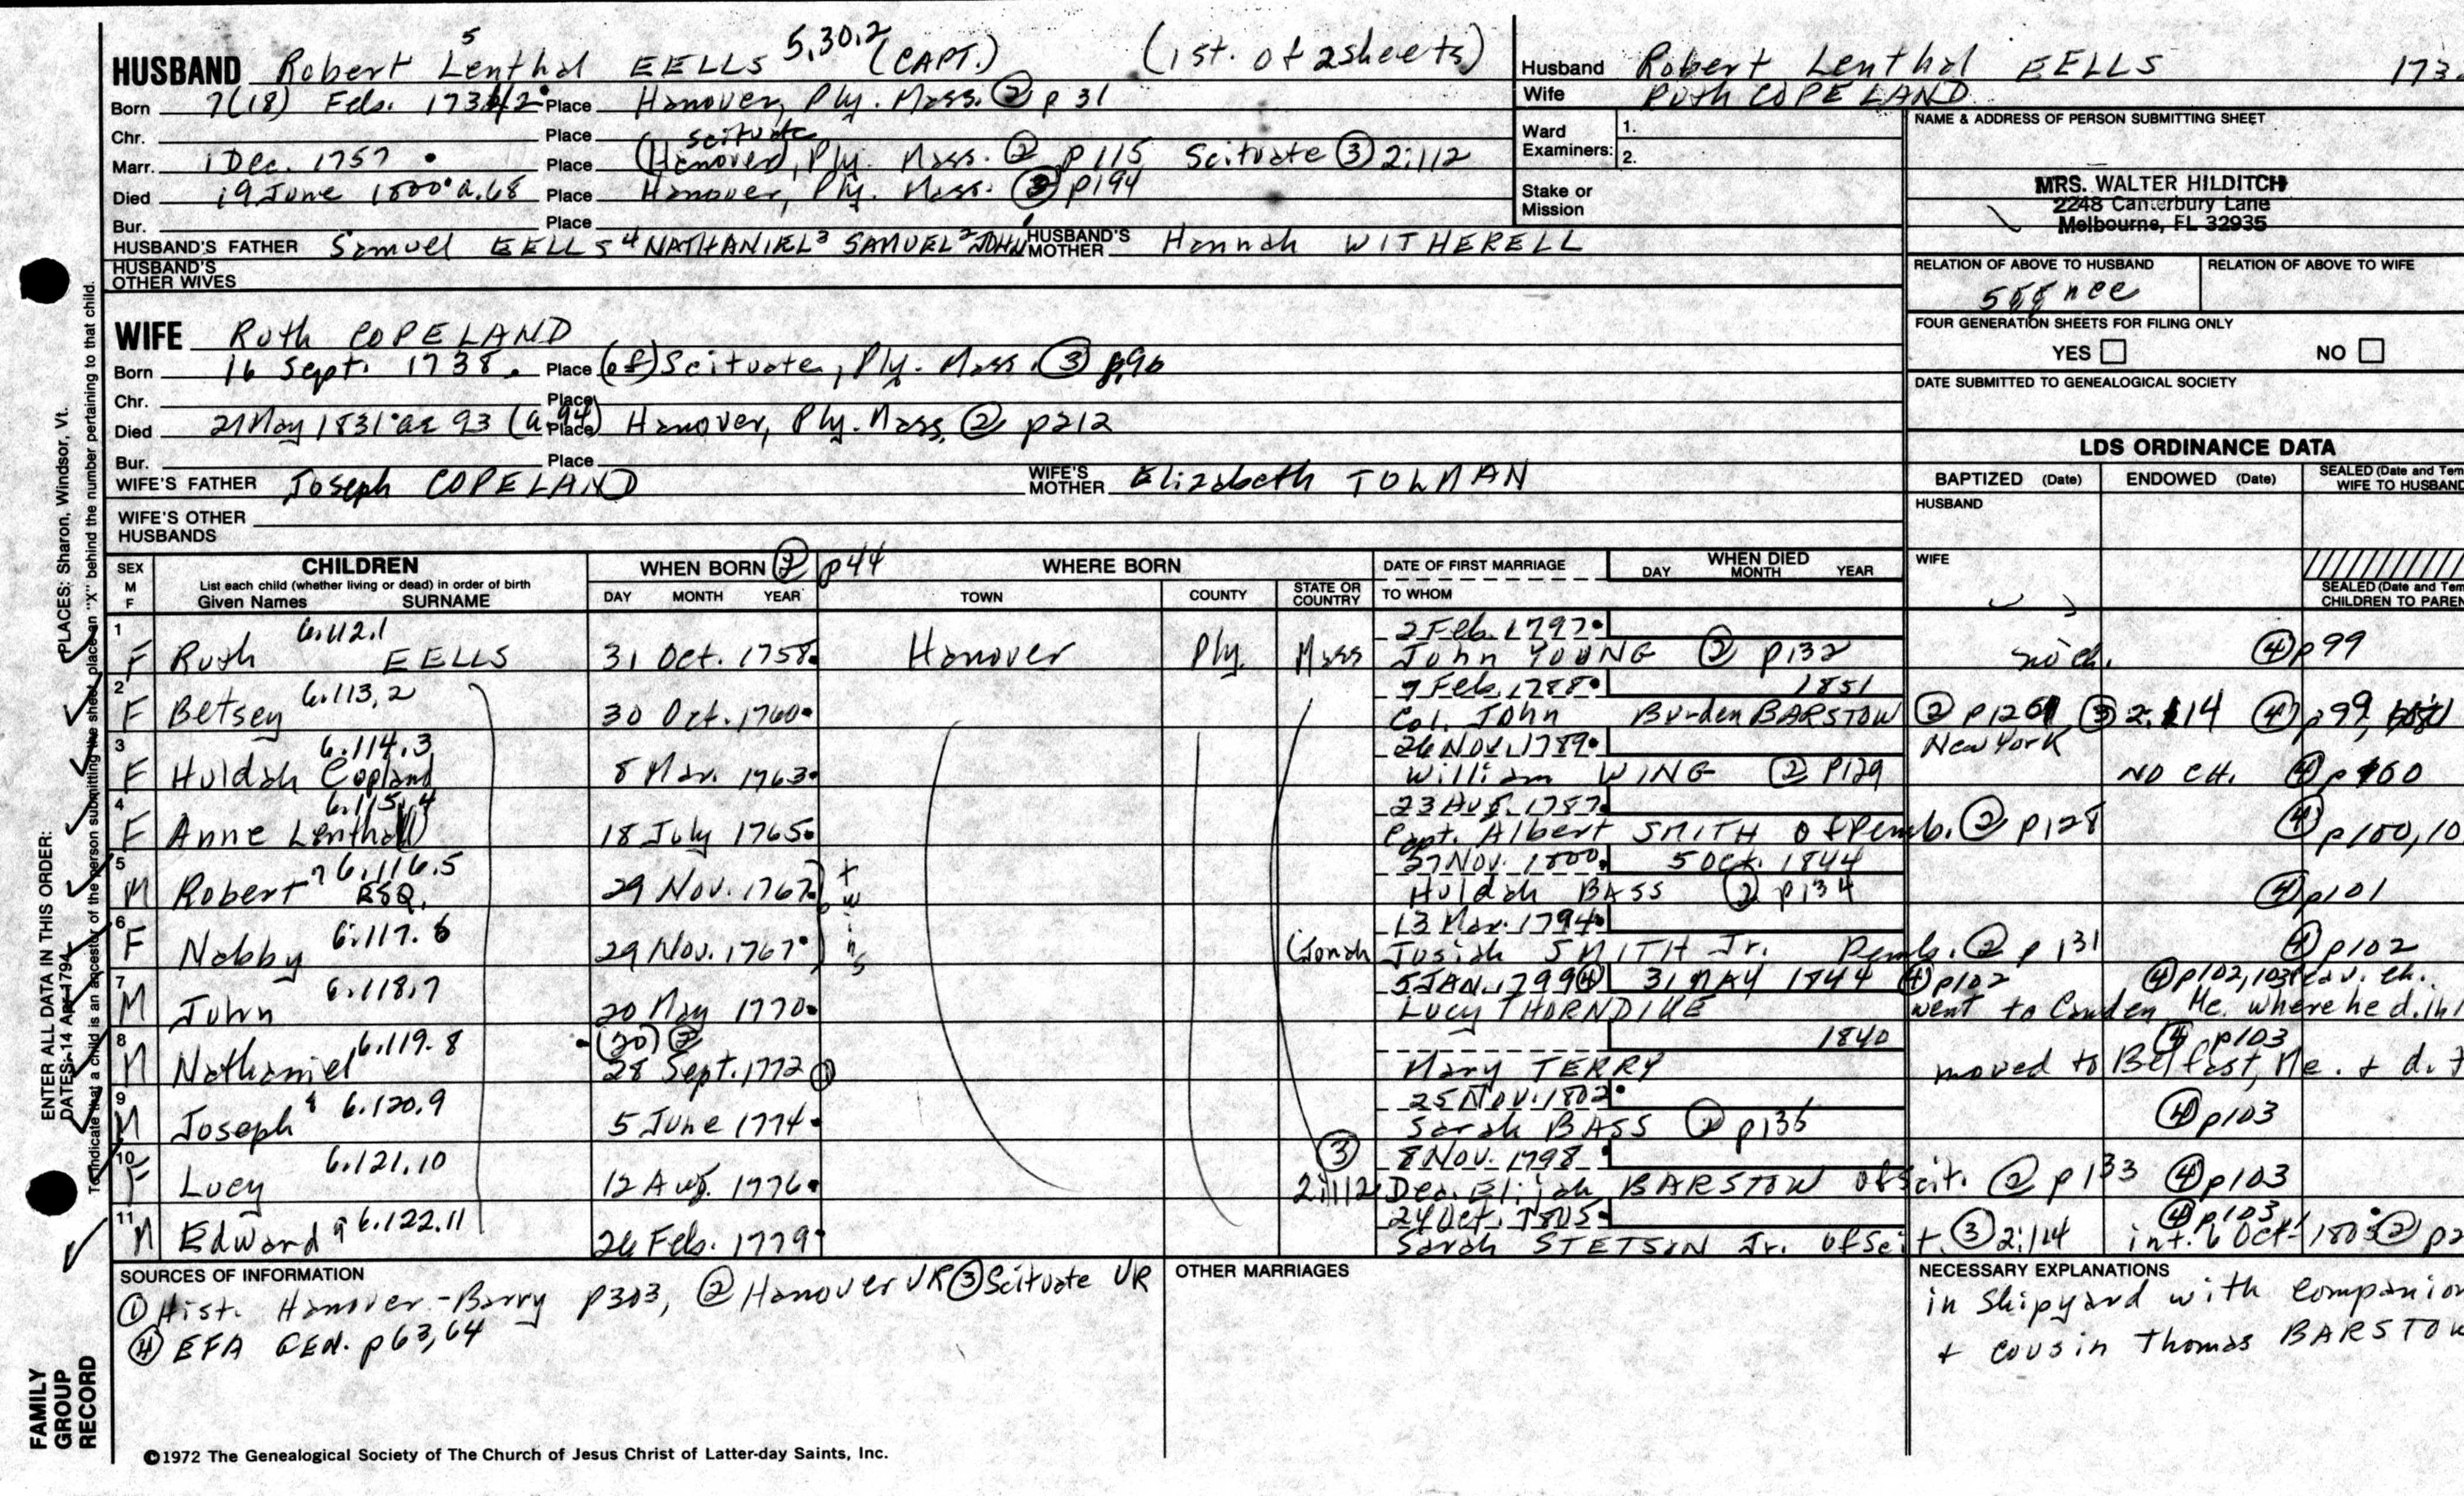 HUSBAND Robert Lenthal 5 EELLS 5.30.2 (CAPT.) (1st. of 2 sheets)
Born 7(18) Feb. 1731/2 Place Hanover, Ply. Mass. ② p 31
Chr. Place Scituate
Marr. 1 Dec. 1757 Place (Hanover), Ply. Mass. ② p 115 Scituate ③ 2:112
Died 19 June 1800 a.68 Place Hanover, Ply. Mass. ② p194
Bur. Place
HUSBAND'S FATHER Samuel EELLS 4 NATHANIEL 3 SAMUEL 2 JOHN 1 HUSBAND'S MOTHER Hannah WITHERELL
HUSBAND'S OTHER WIVES
WIFE Ruth COPELAND
Born 16 Sept. 1738. Place (of) Scituate, Ply. Mass. ③ p.96
Chr. Place
Died 21 May 1831 ae 93 (a 94) Place Hanover, Ply. Mass. ② p212
Bur. Place
WIFE'S FATHER Joseph COPELAND WIFE'S MOTHER Elizabeth TOLMAN
WIFE'S OTHER HUSBANDS
Husband Robert Lenthal EELLS 173
Wife Ruth COPELAND
Ward Examiners: 1.
2.
Stake or Mission
NAME & ADDRESS OF PERSON SUBMITTING SHEET
MRS. WALTER HILDITCH
2248 Canterbury Lane
Melbourne, FL 32935
RELATION OF ABOVE TO HUSBAND RELATION OF ABOVE TO WIFE
FOUR GENERATION SHEETS FOR FILING ONLY
YES NO
DATE SUBMITTED TO GENEALOGICAL SOCIETY
LDS ORDINANCE DATA
BAPTIZED (Date) ENDOWED (Date) SEALED (Date and Tem
WIFE TO HUSBAND
HUSBAND
WIFE
SEALED (Date and Tem
CHILDREN TO PAREN
SEX M F CHILDREN WHEN BORN ② p44 WHERE BORN DATE OF FIRST MARRIAGE WHEN DIED
List each child (whether living or dead) in order of birth DAY MONTH YEAR
Given Names SURNAME DAY MONTH YEAR TOWN COUNTY STATE OR COUNTRY TO WHOM
1 6.112.1 2 Feb. 1797
F Ruth EELLS 31 Oct. 1758 Hanover Ply. Mass John YOUNG ② p132 no ch. ④ p99
2 6.113.2 7 Feb. 1788 1851
F Betsey 30 Oct. 1760 Col. John Burden BARSTOW ② p126 ③ 2.114 ④ p99,
3 6.114.3 26 Nov. 1789 New York
F Huldah Copland 8 Mar. 1763 William WING ② P129 NO CH. ④ p 160
4 6.115.4 23 Aug. 1787
F Anne Lenthall 18 July 1765 Capt. Albert SMITH of Pemb. ② p128 ④ p100,10
5 6.116.5 27 Nov. 1800 5 Oct. 1844
M Robert ESQ. 29 Nov. 1767 twins Huldah BASS ② p134 ④ p101
6 6.117.6 13 Mar. 1794
F Nabby 29 Nov. 1767 (Jonah Josiah SMITH Jr. Pemb. ② p 131 ④ p102
7 6.118.7 5 JAN. 1799 ④ 31 MAY 1844 ④ p102 ④ p102,103
M John 20 May 1770 Lucy THORNDIKE went to Camden, Me. where he d.
8 6.119.8 (30) ② 1840 ④ p103
M Nathaniel 28 Sept. 1772 ① Mary TERRY moved to Belfast, Me. + d.
9 6.120.9 25 Nov. 1802
M Joseph 5 June 1774 Sarah BASS ② p135 ④ p103
10 6.121.10 ③ 8 Nov. 1798
F Lucy 12 Aug. 1776 2:112 Dea. Elijah BARSTOW of Scit. ② p133 ④ p103
11 6.122.11 24 Oct. 1805 ④ p103
M Edward 26 Feb. 1779 Sarah STETSON Jr. of Scit. ③ 2:114 int. 6 Oct. 1805 ② p2
SOURCES OF INFORMATION
① Hist. Hanover - Barry p303, ② Hanover VR ③ Scituate VR
④ EFA GEN. p63,64
OTHER MARRIAGES
NECESSARY EXPLANATIONS
in Shipyard with companion
+ cousin Thomas BARSTOW
©1972 The Genealogical Society of The Church of Jesus Christ of Latter-day Saints, Inc.
ENTER ALL DATA IN THIS ORDER:
DATES: 14 Apr 1794
PLACES: Sharon, Windsor, Vt.
To indicate that a child is an ancestor of the person submitting the sheet, place an "X" behind the number pertaining to that child.
FAMILY
GROUP
RECORD